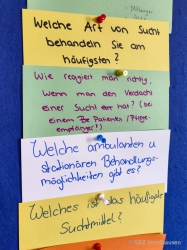 Welche Art von Sucht
behandeln Sie am
häufigsten?
Wie reagiert man richtig,
wenn man den Verdacht
einer Sucht hat? (bei
einem Patienten / Pflege-
empfänger!)
Welche ambulanten u
stationären Behandlungs-
möglichkeiten gibt es?
Welches ist das häufigste
Suchtmittel?